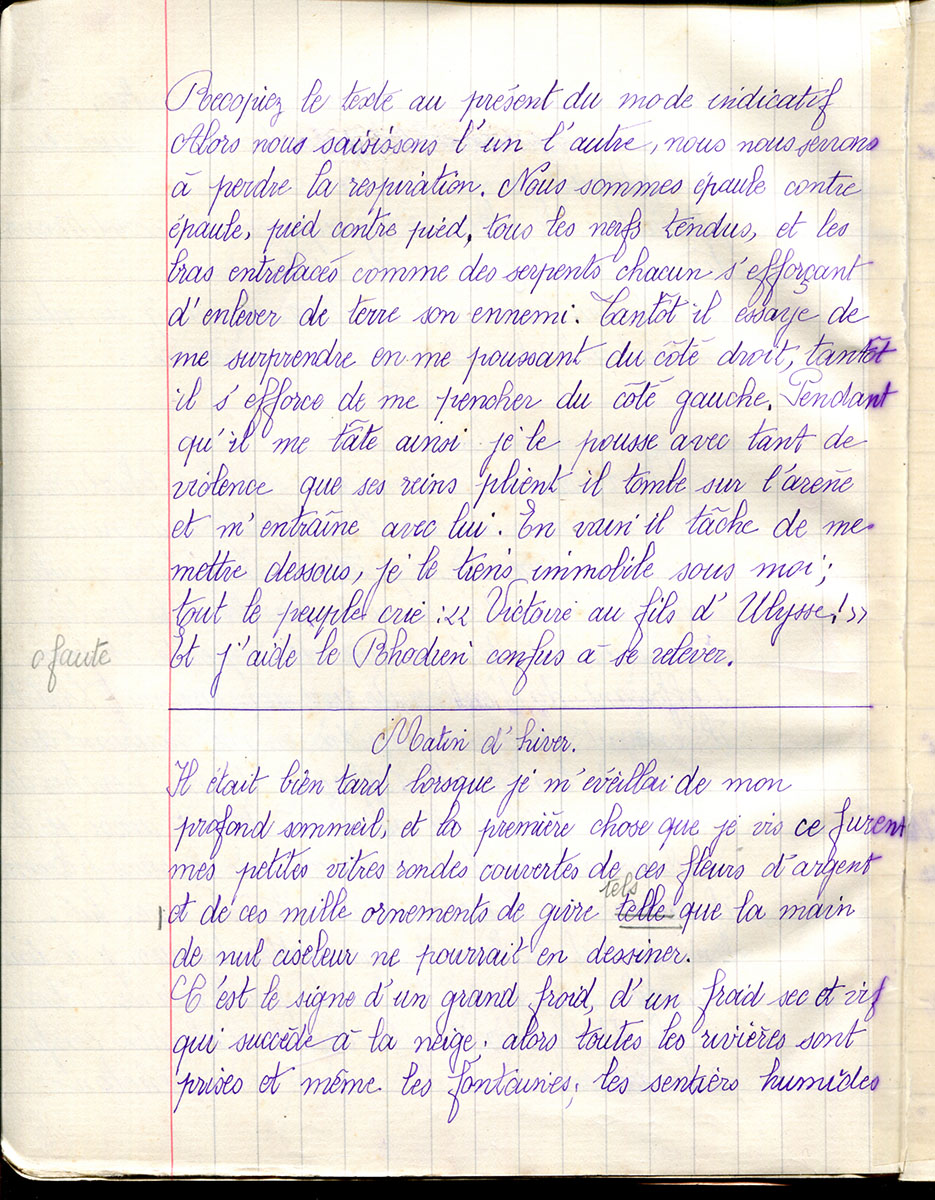 Recopiez le texte au présent du mode indicatif
Alors nous saisissons l'un l'autre, nous nous serrons
à perdre la respiration. Nous sommes épaule contre
épaule, pied contre pied, tous les nerfs tendus, et les
bras entrelacés comme des serpents chacun s'efforçant
d'enlever de terre son ennemi. Tantôt il essaye de
me surprendre en me poussant du côté droit, tantôt
il s'efforce de me pencher du côté gauche. Pendant
qu'il me tâte ainsi je le pousse avec tant de
violence que ses reins plient il tombe sur l'arène
et m'entraîne avec lui. En vain il tâche de me
mettre dessous, je le tiens immobile sous moi ;
tout le peuple crie : << Victoire au fils d'Ulysse ! >>
0 faute Et j'aide le Rhodien confus à se relever.
Matin d'hiver.
Il était bien tard lorsque je m'éveillai de mon
profond sommeil, et la première chose que je vis ce furent
mes petites vitres rondes couvertes de ces fleurs d'argent
tels
et de ces mille ornements de givre telle que la main
de nul ciseleur ne pourrait en dessiner.
C'est le signe d'un grand froid, d'un froid sec et vif
qui succède à la neige. alors toutes les rivières sont
prises et même les fontaines ; les sentiers humides